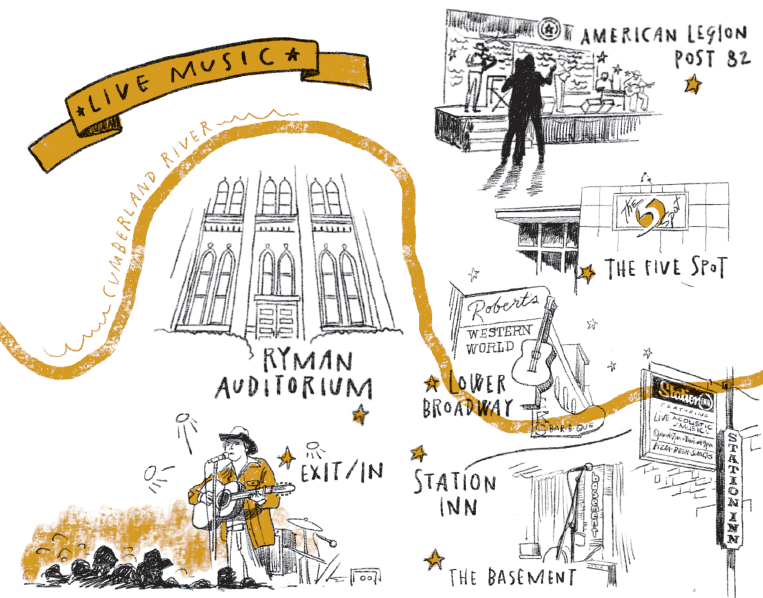 LIVE MUSIC
CUMBERLAND RIVER
AMERICAN LEGION
POST 82
THE 5 SPOT
THE FIVE SPOT
Roberts
WESTERN
WORLD
RYMAN
AUDITORIUM
LOWER
BROADWAY
BAR-B-QUE
Station Inn
FEATURING
LIVE ACOUSTIC
MUSIC
STATION INN
EXIT/IN
STATION
INN
basement
THE BASEMENT